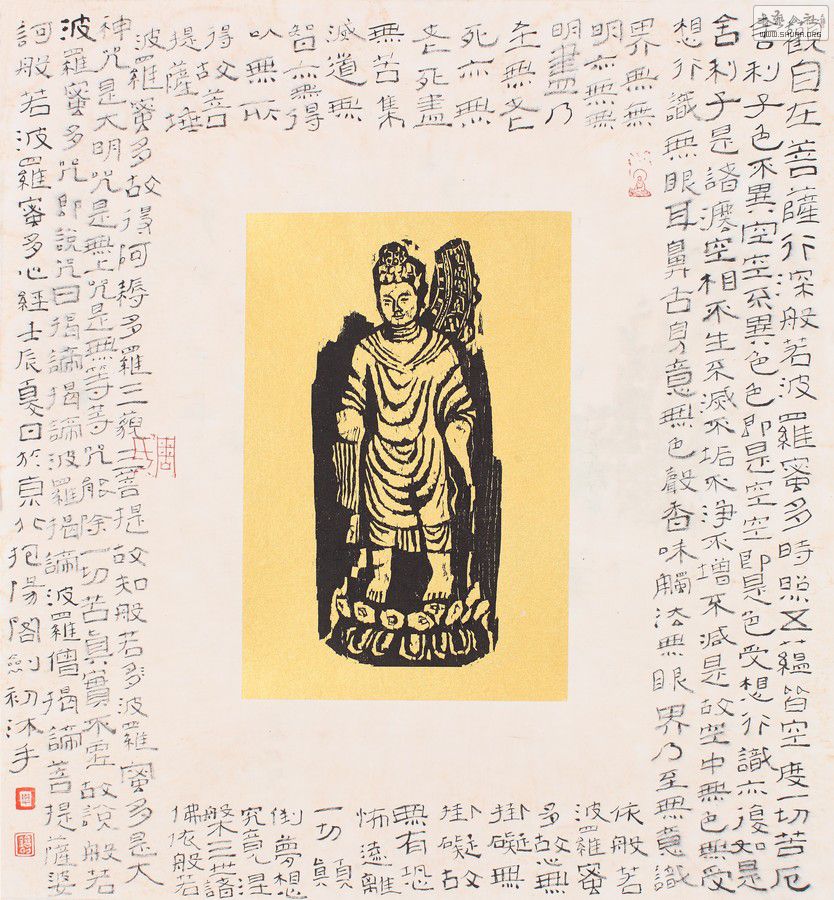 觀自在菩薩行深般若波羅蜜多時照五蘊皆空度一切苦厄
舍利子色不異空空不異色色即是空空即是色受想行識亦復如是
舍利子是諸法空相不生不滅不垢不淨不增不減是故空中無色無受
想行識無眼耳鼻舌身意無色聲香味觸法無眼界乃至無意識
界無無
明亦無無
明盡乃
至無老
死亦無
老死盡
無苦集
滅道無
智亦無得
以無所
得故菩
提薩埵
依般若
波羅蜜
多故心無
挂礙無
挂礙故
無有恐
怖遠離
一切顛
倒夢想
究竟涅
槃三世諸
佛依般若
波羅蜜多故得阿耨多羅三藐三菩提故知般若多波羅蜜多是大
神咒是大明咒是無上咒是無等等咒能除一切苦真實不虛故說般若
波羅蜜多咒即說咒曰揭諦揭諦波羅揭諦波羅僧揭諦菩提薩婆
訶般若波羅蜜多心經壬辰夏日於京北抱陽閣劍初沐手